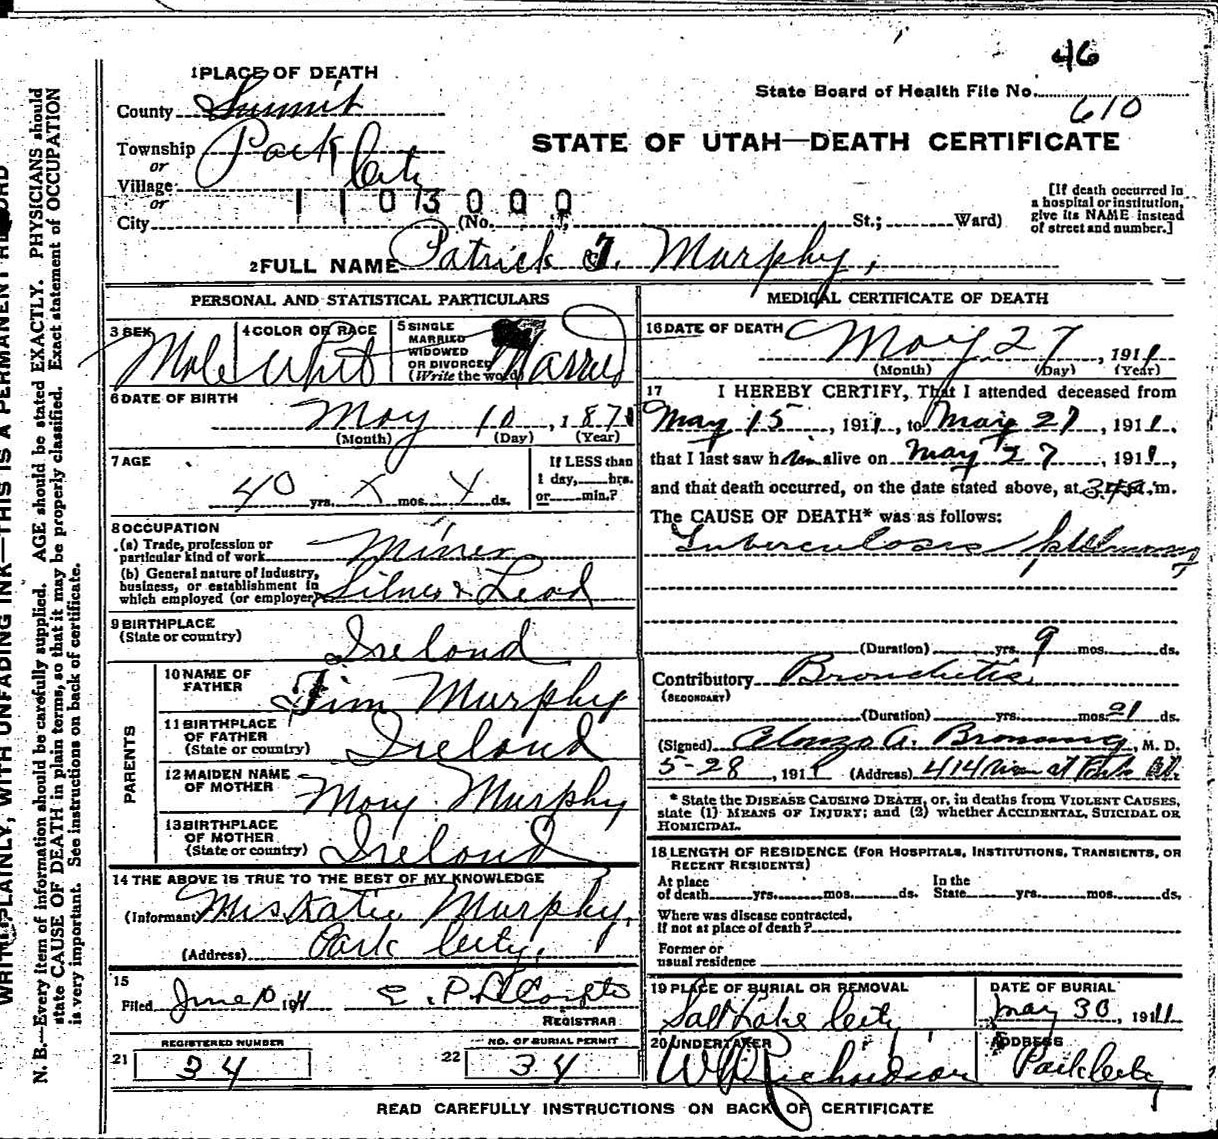 46
State Board of Health File No. 610
STATE OF UTAH—DEATH CERTIFICATE
1 PLACE OF DEATH
County Summit
Township Park City
or
Village
or
1103000
City (No. St.; Ward)
[If death occurred in
a hospital or institution,
give its NAME instead
of street and number.]
2 FULL NAME Patrick J. Murphy,
PERSONAL AND STATISTICAL PARTICULARS
3 SEX Male
4 COLOR OR RACE White
5 SINGLE
MARRIED
WIDOWED
OR DIVORCED
(Write the word) Married
6 DATE OF BIRTH
May 10, 1871
(Month) (Day) (Year)
7 AGE
40 yrs. X mos. X ds.
If LESS than
1 day, hrs.
or min.?
8 OCCUPATION
(a) Trade, profession or
particular kind of work Miner
(b) General nature of industry,
business, or establishment in
which employed (or employer) Silver & Lead
9 BIRTHPLACE
(State or country) Ireland
PARENTS
10 NAME OF
FATHER Jim Murphy
11 BIRTHPLACE
OF FATHER
(State or country) Ireland
12 MAIDEN NAME
OF MOTHER Mary Murphy
13 BIRTHPLACE
OF MOTHER
(State or country) Ireland
14 THE ABOVE IS TRUE TO THE BEST OF MY KNOWLEDGE
(Informant) Mrs Katie Murphy,
(Address) Park City,
15
Filed June 10 1911 E. P.
REGISTRAR
REGISTERED NUMBER
21 34
NO. OF BURIAL PERMIT
22 34
MEDICAL CERTIFICATE OF DEATH
16 DATE OF DEATH
May 27, 1911
(Month) (Day) (Year)
17 I HEREBY CERTIFY, That I attended deceased from
May 15, 1911, to May 27, 1911,
that I last saw him alive on May 27, 1911,
and that death occurred, on the date stated above, at m.
The CAUSE OF DEATH* was as follows:
Tuberculosis pulmonary
(Duration) yrs. 9 mos. ds.
Contributory Bronchitis
(SECONDARY)
(Duration) yrs. mos. 21 ds.
(Signed) Alonzo A. M. D.
5-28, 1911 (Address) 414 Park
* State the DISEASE CAUSING DEATH, or, in deaths from VIOLENT CAUSES,
state (1) MEANS OF INJURY; and (2) whether ACCIDENTAL, SUICIDAL OR
HOMICIDAL.
18 LENGTH OF RESIDENCE (FOR HOSPITALS, INSTITUTIONS, TRANSIENTS, OR
RECENT RESIDENTS)
At place
of death yrs. mos. ds.
In the
State yrs. mos. ds.
Where was disease contracted,
If not at place of death?
Former or
usual residence
19 PLACE OF BURIAL OR REMOVAL
Salt Lake City
DATE OF BURIAL
May 30, 1911
20 UNDERTAKER
W Richardson
ADDRESS
Park City
READ CAREFULLY INSTRUCTIONS ON BACK OF CERTIFICATE
WRITE PLAINLY, WITH UNFADING INK—THIS IS A PERMANENT RECORD
N. B.—Every item of information should be carefully supplied. AGE should be stated EXACTLY. PHYSICIANS should
state CAUSE OF DEATH in plain terms, so that it may be properly classified. Exact statement of OCCUPATION
is very important. See instructions on back of certificate.